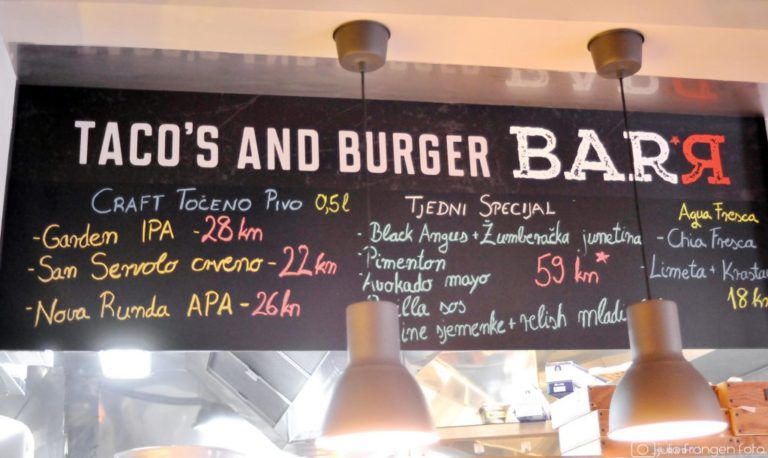 TACO'S AND BURGER BAR*Я
CRAFT TOČENO PIVO 0,5l
-Garden IPA -28 kn
-San Servolo crveno-22 kn
-Nova Runda APA-26 kn
TJEDNI SPECIJAL
-Black Angus+Žumberačka junetina
-Pimenton
Avokado mayo
59 kn*
sos
sjemenke+relish mladi
Agua Fresca
-Chia Fresca
-Limeta+
18 kn
julio frangen foto